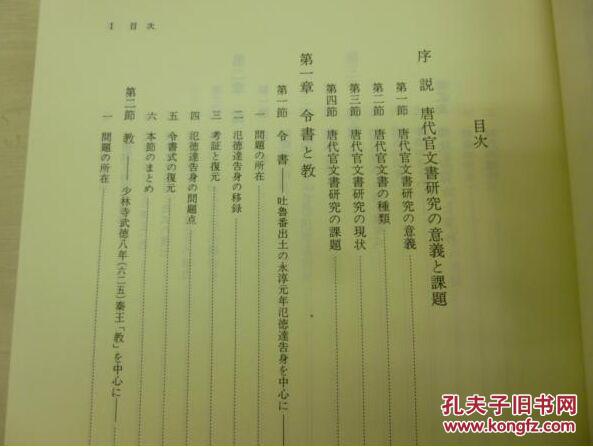 I 目次
目次
序説 唐代官文書研究の意義と課題
第一節 唐代官文書研究の意義
第二節 唐代官文書の種類
第三節 唐代官文書研究の現状
第四節 唐代官文書研究の課題
第一章 令書と教
第一節 令書——吐魯番出土の永淳元年氾徳達告身を中心に——
一 問題の所在
二 氾徳達告身の移録
三 考証と復元
四 氾徳達告身の問題点
五 令書式の復元
六 本節のまとめ
第二節 教——少林寺武徳八年(六二五)秦王「教」を中心に——
一 問題の所在
孔夫子旧书网
www.kongfz.com